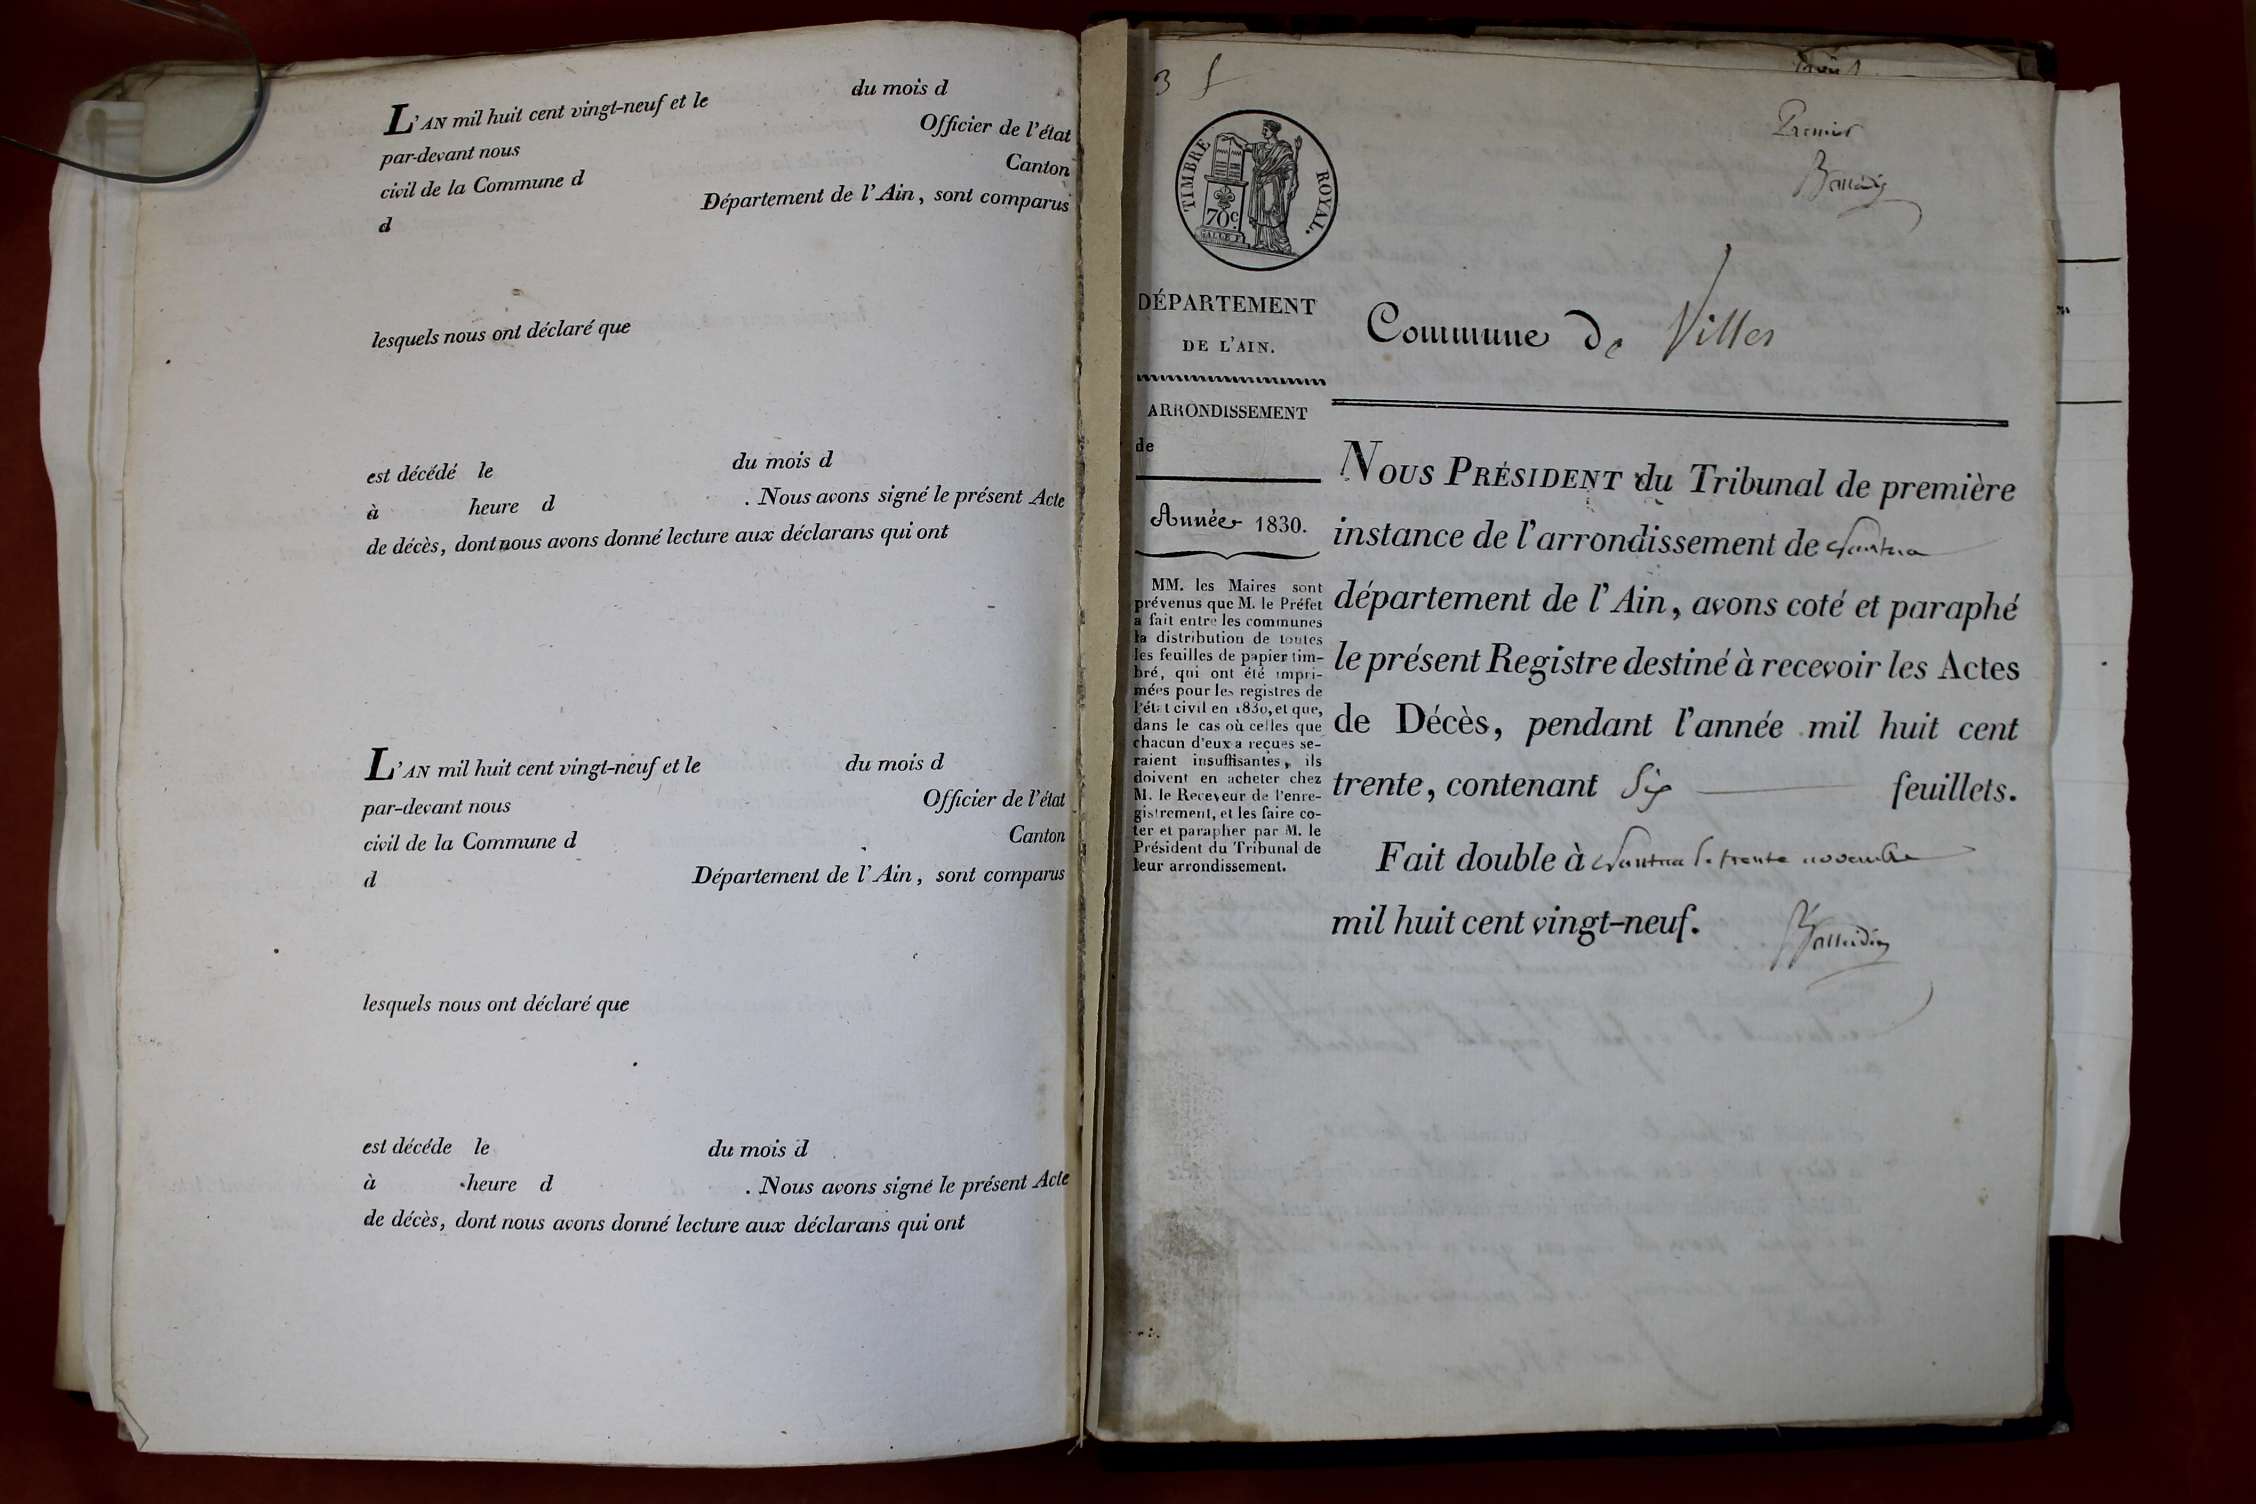 L'AN mil huit cent vingt-neuf et le du mois d
par-devant nous Officier de l'état
civil de la Commune d Canton
d Département de l'Ain, sont comparus
lesquels nous ont déclaré que
est décédé le du mois d
à heure d . Nous avons signé le présent Acte
de décès, dont nous avons donné lecture aux déclarans qui ont
L'AN mil huit cent vingt-neuf et le du mois d
par-devant nous Officier de l'état
civil de la Commune d Canton
d Département de l'Ain, sont comparus
lesquels nous ont déclaré que
est décéde le du mois d
à heure d . Nous avons signé le présent Acte
de décès, dont nous avons donné lecture aux déclarans qui ont
3
Premier
TIMBRE ROYAL.
70c
DÉPARTEMENT
DE L'AIN.
ARRONDISSEMENT
de
Année 1830.
MM. les Maires sont
prévenus que M. le Préfet
a fait entre les communes
la distribution de toutes
les feuilles de papier tim-
bré, qui ont été impri-
mées pour les registres de
l'état civil en 1830, et que,
dans le cas où celles que
chacun d'eux a reçues se-
raient insuffisantes, ils
doivent en acheter chez
M. le Receveur de l'enre-
gistrement, et les faire co-
ter et parapher par M. le
Président du Tribunal de
leur arrondissement.
Commune de Villes
NOUS PRÉSIDENT du Tribunal de première
instance de l'arrondissement de Nantua
département de l'Ain, avons coté et paraphé
le présent Registre destiné à recevoir les Actes
de Décès, pendant l'année mil huit cent
trente, contenant Six feuillets.
Fait double à Nantua le trente novembre
mil huit cent vingt-neuf.